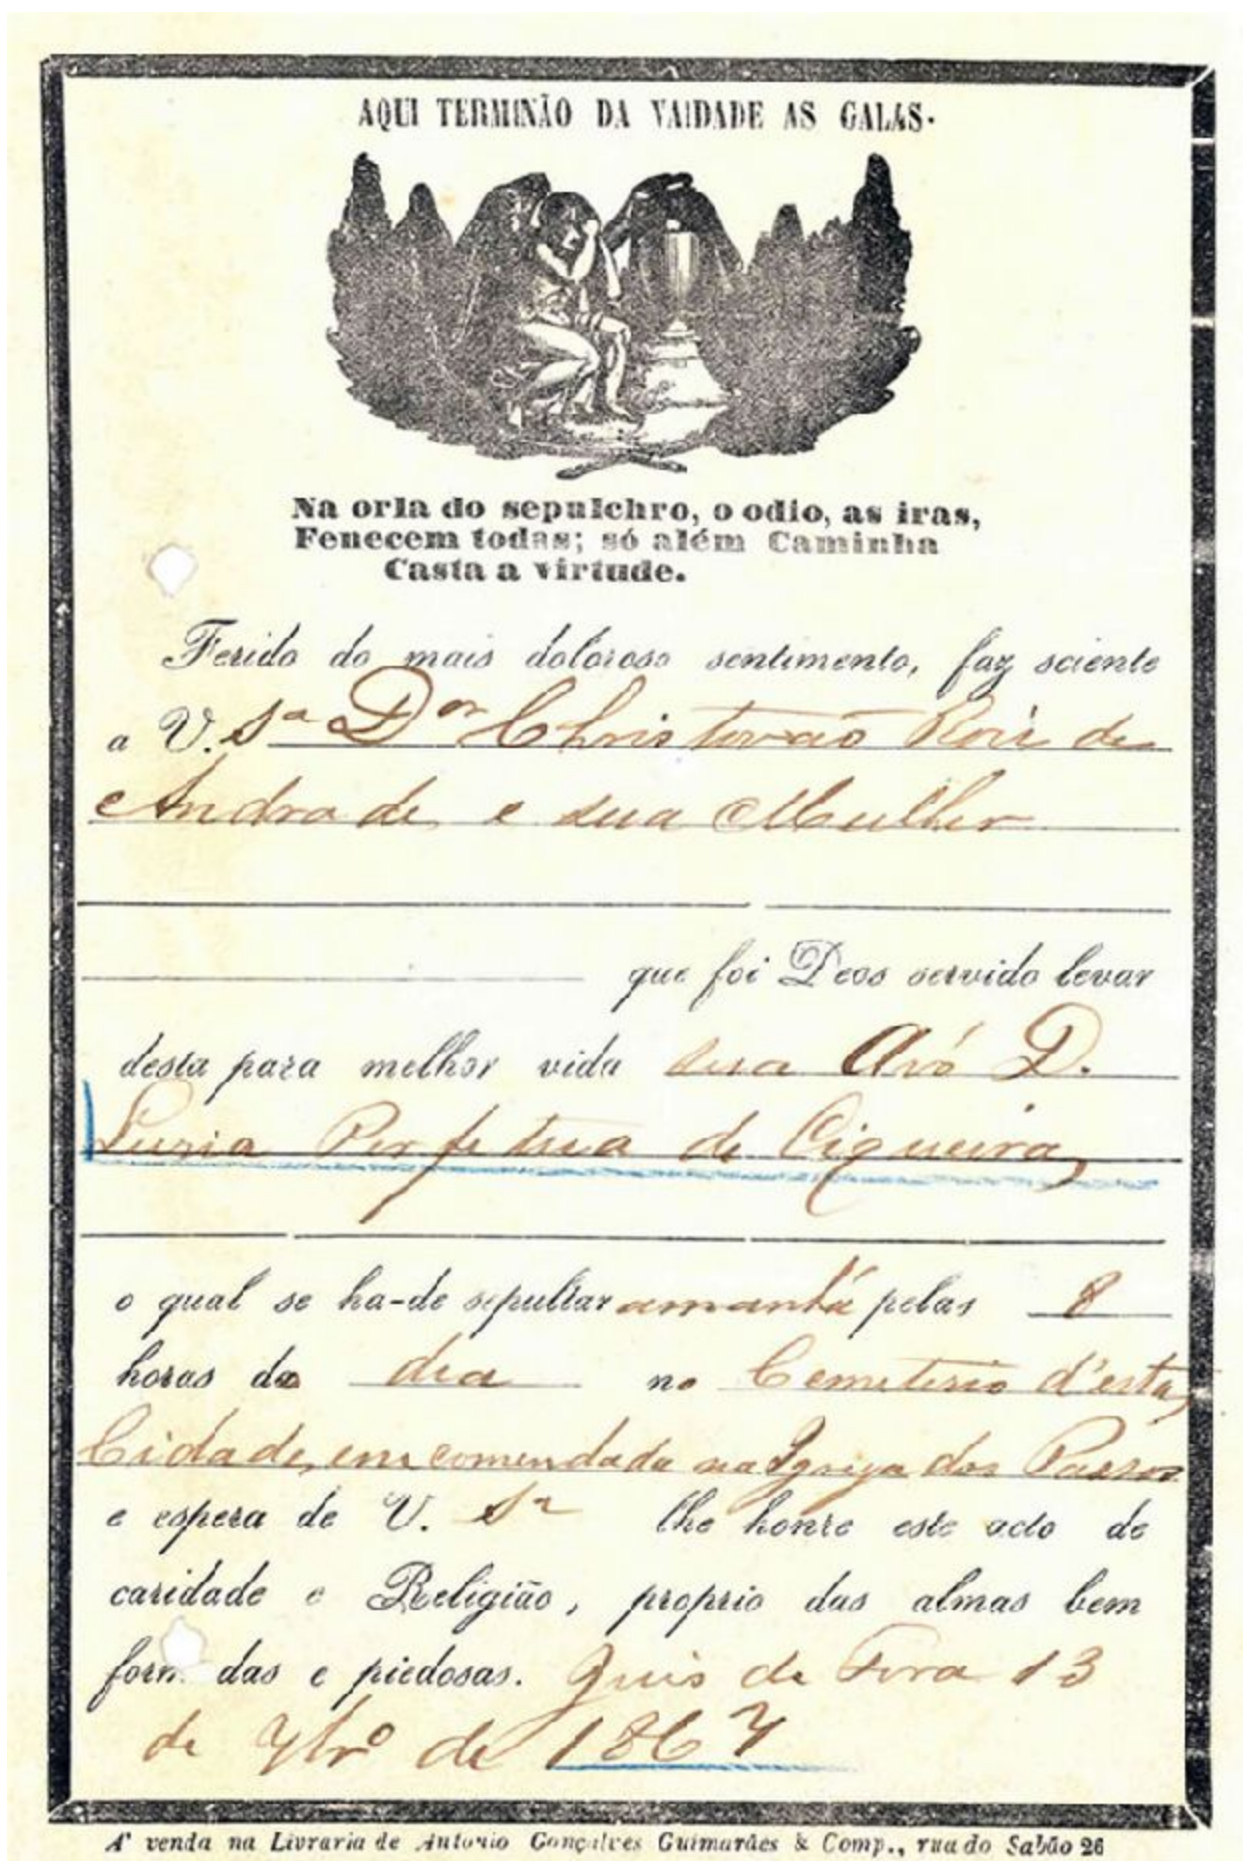 AQUI TERMINÃO DA VAIDADE AS GALAS.
Na orla do sepulchro, o odio, as iras,
Fenecem todas; só além Caminha
Casta a virtude.
Ferido do mais doloroso sentimento, faz sciente
a V. Sª Dor Christovão Roiz de
Andrade e sua Mulher
que foi Deos servido levar
desta para melhor vida sua Avó D.
Luzia Perfetua de Ciqueira,
o qual se ha-de sepultar amanhã pelas 8
horas do dia no Cemiterio d'esta
Cidade, emcomendada na Igreja dos Passos
e espera de V. Sª lhe honre este acto de
caridade e Religião, proprio das almas bem
form das e piedosas. Juis de Fora 13
de 7brº de 1867
A' venda na Livraria de Antonio Gonçalves Guimarães & Comp., rua do Sabão 26